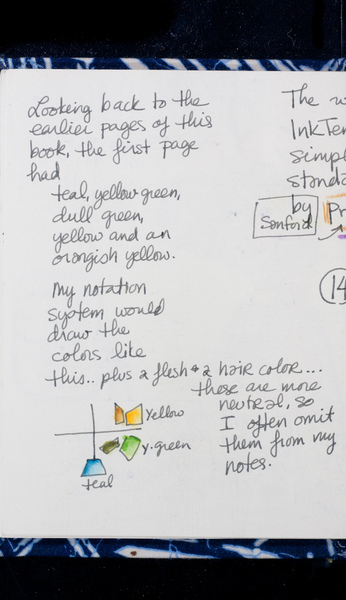 Looking back to the
earlier pages of this
book, the first page
had
teal, yellow green,
dull green,
yellow and an
orangish yellow.
My notation
system would
draw the
colors like
this.. plus a flesh & a hair color....
these are more
neutral, so
I often omit
them from my
notes.
Yellow
y.green
teal
The w
InkTen
simpl
standa
by
Sanford
Pr
14